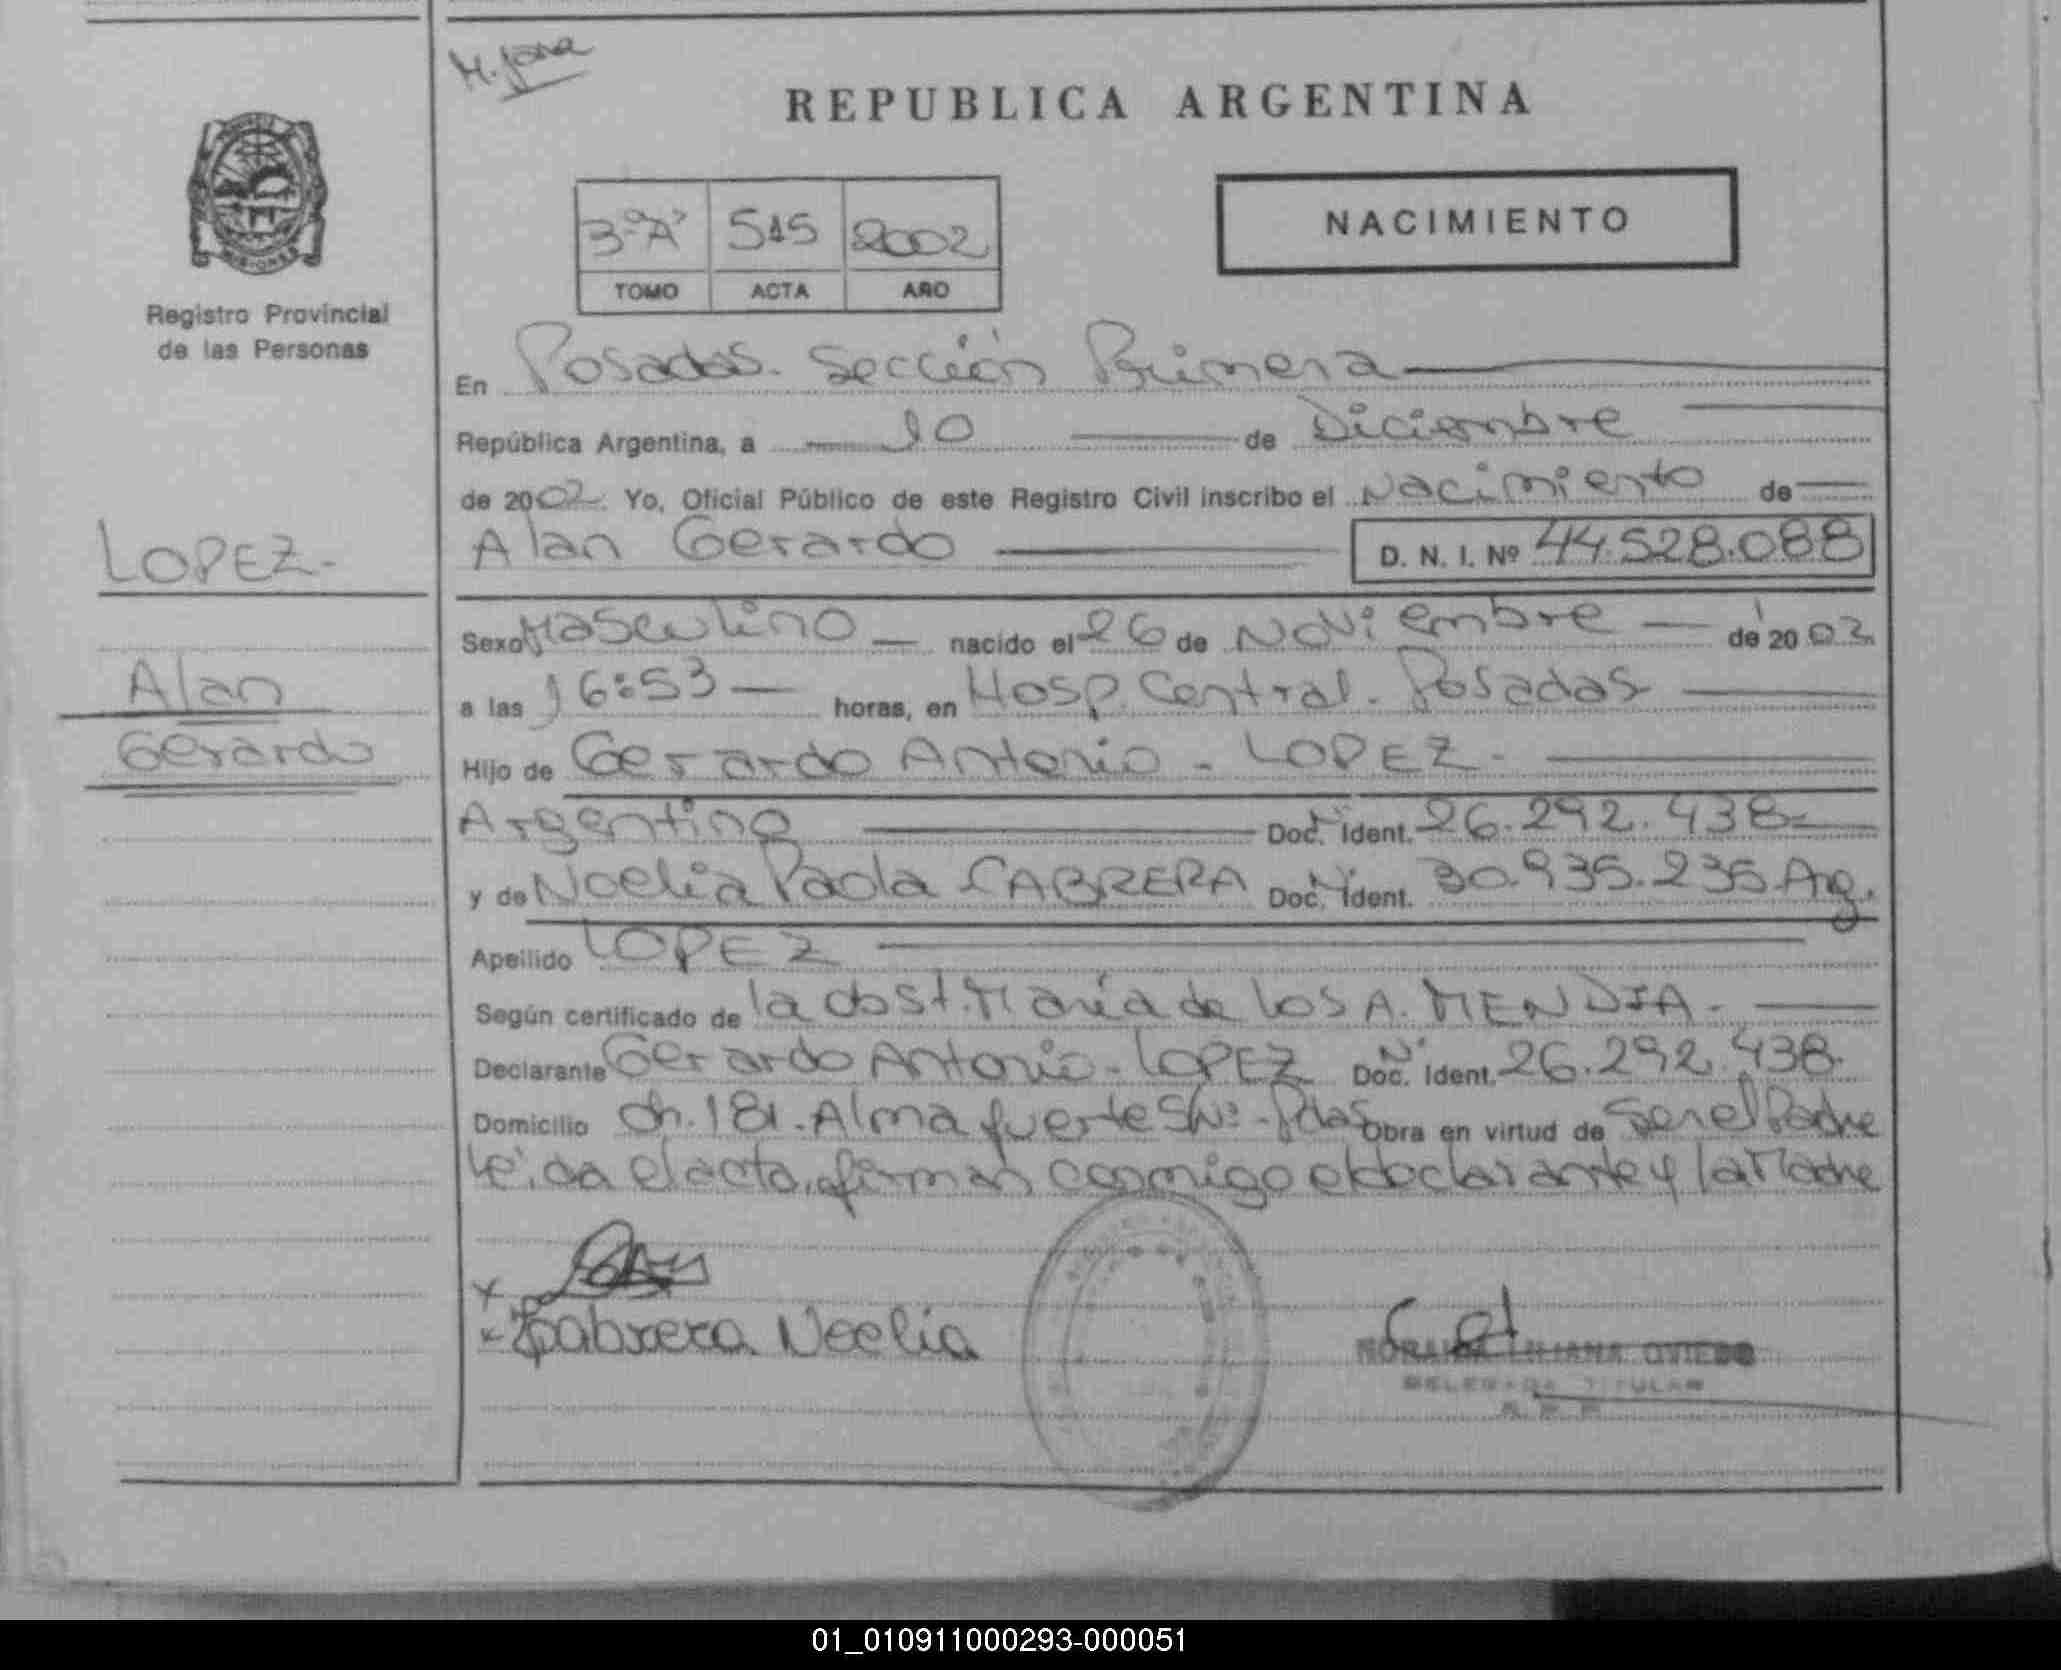 M. Jara
REPUBLICA ARGENTINA
3º "A" 515 2002
TOMO ACTA AÑO
NACIMIENTO
MISIONES
Registro Provincial
de las Personas
LOPEZ-
Alan
Gerardo
En Posadas. Sección Primera
República Argentina, a 10 de Diciembre
de 2002. Yo, Oficial Público de este Registro Civil inscribo el Nacimiento de
Alan Gerardo D. N. I. Nº 44.528.088
Sexo Masculino nacido el 26 de Noviembre de 2002
a las 16:53 horas, en Hosp. Central. Posadas
Hijo de Gerardo Antonio - LOPEZ-
Argentino Doc. Nº Ident. 26.292.438-
y de Noelia Paola CABRERA Doc. Nº Ident. 30.935.235 Arg.
Apellido LOPEZ
Según certificado de la obst. María de los A. MENDIA-
Declarante Gerardo Antonio- LOPEZ Doc. Nº Ident. 26.292.438-
Domicilio ch. 181. Almafuerte S/Nº - Pdas Obra en virtud de ser el Padre
Leída el acta, firman conmigo el declarante y la Madre
x
x Cabrera Noelia
LILIANA OVIEDO
DELEGADA TITULAR
01_010911000293-000051